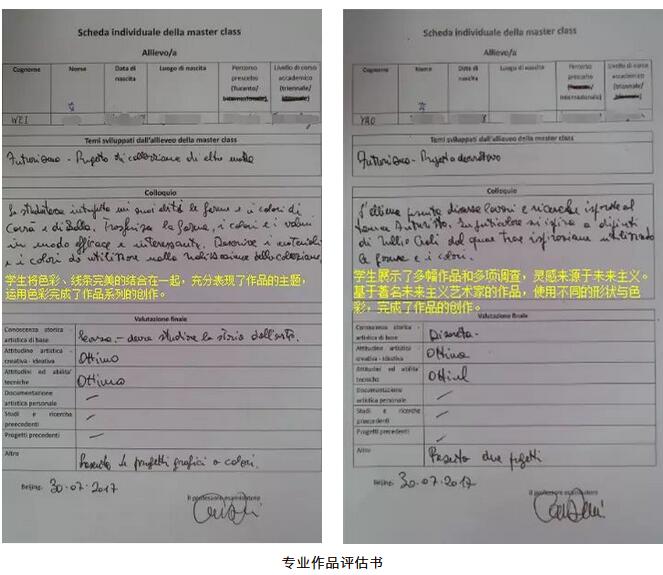 Scheda individuale della master class
Allievo/a
Cognome Nome Data di nascita Luogo di nascita Percorso prescelto (Turanto/internazionale) Livello di corso accademico (triennale/
WEI
Temi sviluppati dall'allieveo della master class
Futurismo - Progetto di collezione di alta moda
Colloquio
Lo studente interpreta nei suoi abiti le forme e i colori di
Carrà e di Balla. Trasferisce la forma, i colori e i valori
in modo efficace e interessante. Descrive i materiali
e i colori da utilizzare nella realizzazione della collezione.
学生将色彩、线条完美的结合在一起，充分表现了作品的主题，
运用色彩完成了作品系列的创作。
Valutazione finale
Conoscenza storica - artistica di base
Scarsa - deve studiare la storia dell'arte.
Attitudine artistica - creativa - ideativa
Ottimo
Attitudini ed abilita' tecniche
Ottimo
Documentazione artistica personale
Studi e ricerche preecedenti
Progetti precedenti
Altro
Presenta progetti grafici a colori.
Beijing 30-07-2017
Il professore esaminatore
Scheda individuale della master class
Allievo/a
Cognome Nome Data di nascita Luogo di nascita Percorso prescelto internazionale) Livello di corso accademico (triennale/
YAO
Temi sviluppati dall'allieveo della master class
Futurismo - Progetto decorativo
Colloquio
L'allieva presenta diversi lavori e ricerche ispirate al
tema Futurista. In particolare si ispira a dipinti
di Tullio Crali dal quale trae ispirazione utilizzando
le forme e i colori.
学生展示了多幅作品和多项调查，灵感来源于未来主义。
基于著名未来主义艺术家的作品，使用不同的形状与色
彩，完成了作品的创作。
Valutazione finale
Conoscenza storica - artistica di base
Discreta -
Attitudine artistica - creativa - ideativa
Ottima
Attitudini ed abilita' tecniche
Documentazione artistica personale
Studi e ricerche preecedenti
Progetti precedenti
Altro
Presenta due progetti
Beijing 30-07-2017
Il professore esaminatore
专业作品评估书